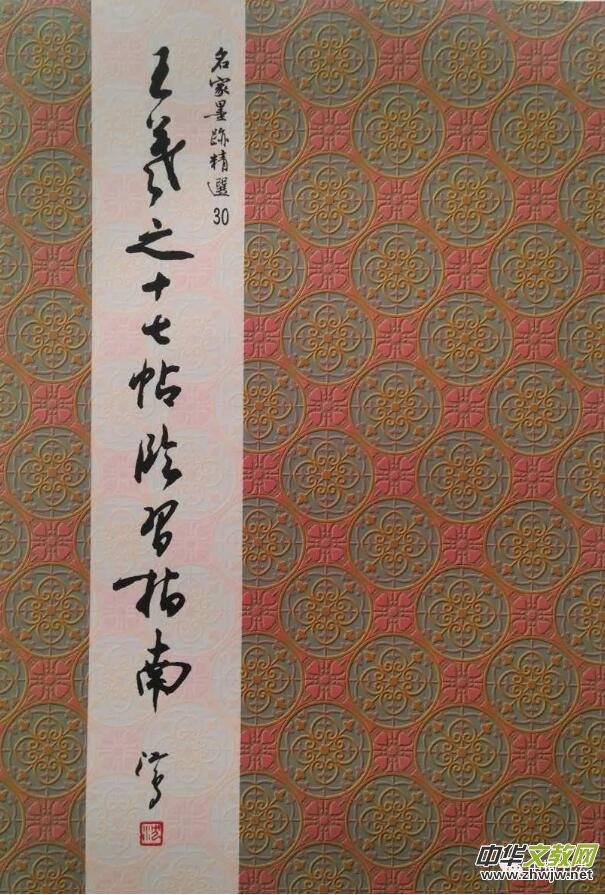 名家墨跡精選 30
王羲之十七帖临習指南
中华文教网
www.zhwjw.net